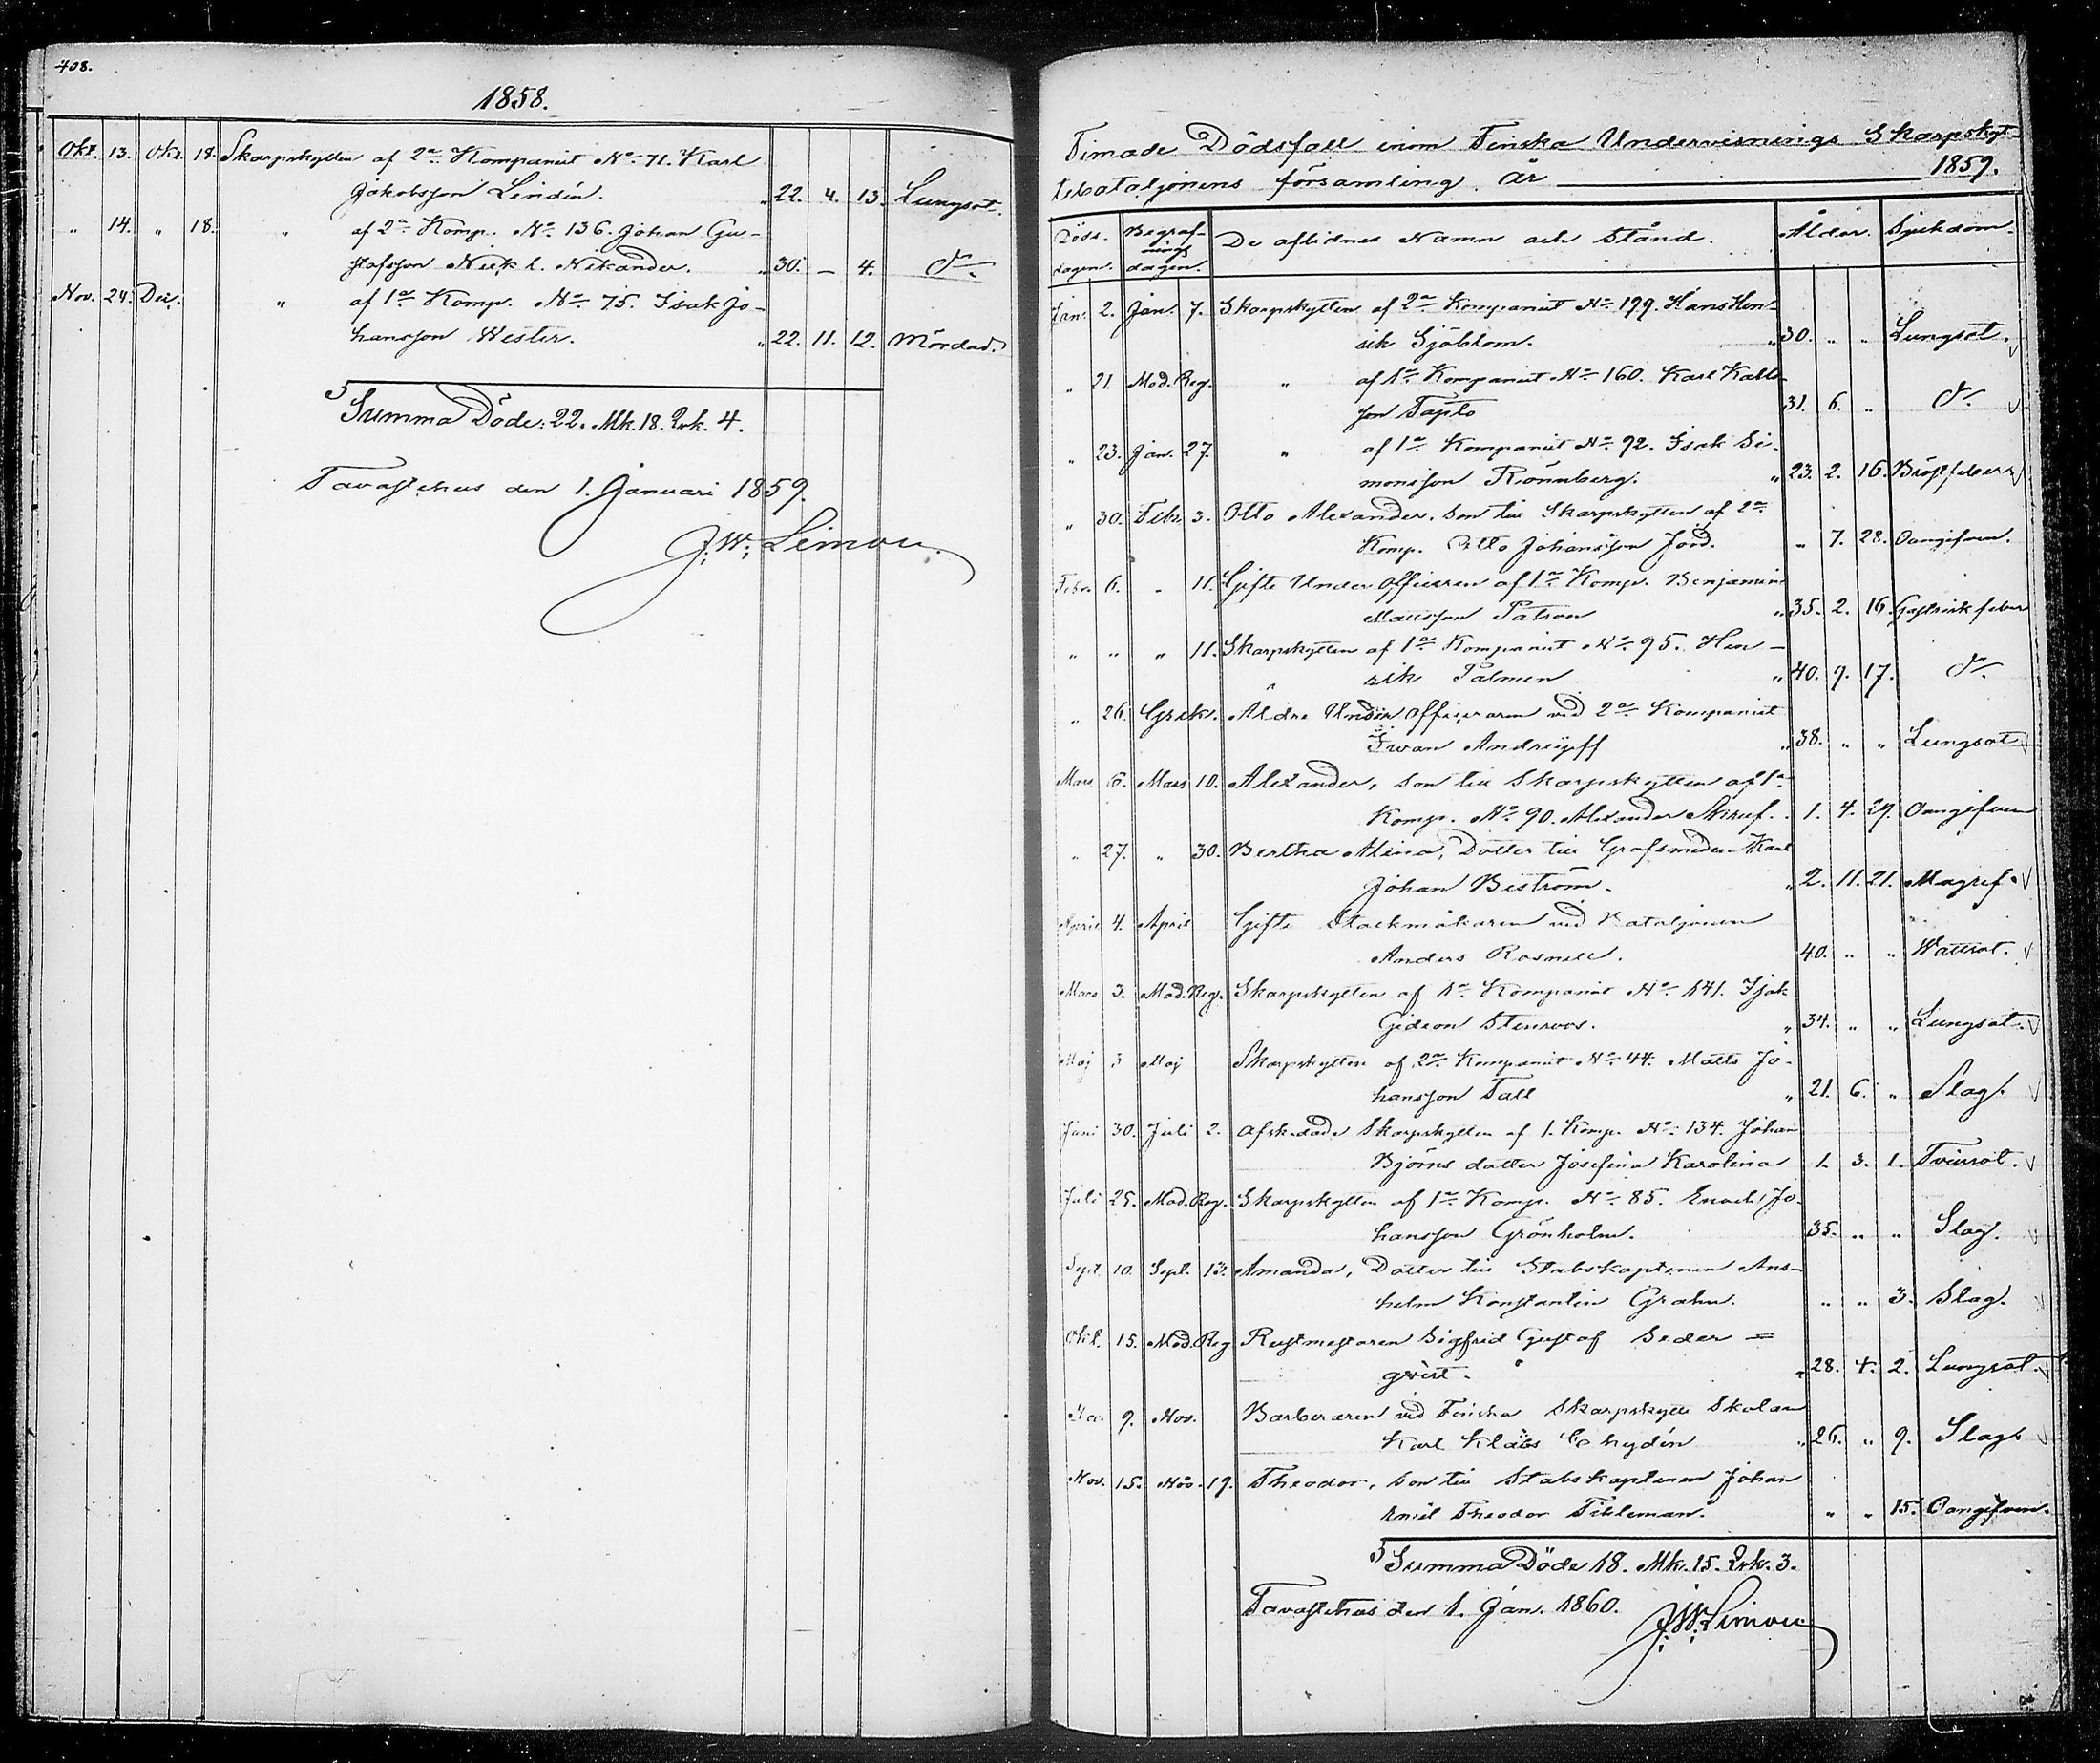 408.
1858.
Okt. 13. Okt. 18. Skarpskytten af 2a Kompaniet No 71. Karl
Jakobsson Lindén. „ 22. 4. 13. Lungsot.
„ 14. „ 18. „ af 2a Komp. No 136. Johan Gu-
stafsson Nikander. „ 30. — 4. do
Nov. 24. Dec. „ af 1a Komp. No 75. Isak Jo-
hansson Wester. „ 22. 11. 12. Mördad.
Summa Döde: 22. Mk. 18. Qvk. 4.
Tavastehus den 1. Januari 1859.
J. W. Limon.
Timade Dödsfall inom Finska Undervisnings Skarpskyt-
tebataljonens församling år 1859.
Döds- Begraf- De aflidnes Namn och Stånd. Ålder. Sjukdom.
dagen. nings
dagen.
Jan. 2. Jan. 7. Skarpskytten af 2a Kompaniet No 199. Hans Hen-
rik Sjöblom. „ 30. „ „ Lungsot.
„ 21. Mod. Reg. „ af 1a Kompaniet No 160. Karl Karls-
son Tapto 31. 6. „ do
„ 23. Jan. 27. „ af 1a Kompaniet No 92. Isak Si-
monsson Rönnberg. „ 23. 2. 16. Bröstfeber
„ 30. Febr. 3. Otto Alexander, Son till Skarpskytten af 2a
Komp. Otto Johansson Jord. „ 7. 28. Oangifven.
Febr. 6. „ 11. Gifte Under Officeren af 1a Komp. Benjamin
Mattsson Patron „ 35. 2. 16. Gastrisk feber
„ „ „ 11. Skarpskytten af 1a Kompaniet No 95. Hen-
rik Palmen „ 40. 9. 17. do
„ 26. Grek. Äldre Under officeraren vid 2a Kompaniet
Iwan Andreijeff „ 38. „ „ Lungsot
Mars 6. Mars 10. Alexander, Son till Skarpskytten af 1a
Komp. No 90. Alexander Skruf. 1. 4. 29. Oangifven
„ 27. „ 30. Bertha Alina, Dotter till Grofsmeden Karl
Johan Biström. „ 2. 11. 21. Magref.
April 4. April Gifte Stockmakaren vid Bataljonen
Anders Rosnell. 40. „ „ Wattsot.
Mars 3. Mod. Reg. Skarpskytten af 1a Kompaniet No 141. Isak
Gideon Stenroos. „ 34. „ „ Lungsot.
Maj 3 Maj Skarpskytten af 2a Kompaniet No 44. Matts Jo-
hansson Tall „ 21. 6. „ Slag.
Juni 30. Juli 2. Afskedade Skarpskytten af 1. Komp. No 134. Johan
Björns dotter Josefina Karolina 1. 3. 1. Tvinsot.
Juli 25. Mod. Reg. Skarpskytten af 1a Komp. No 85. Enoch Jo-
hansson Grönholm. 35. „ „ Slag.
Sept. 10. Sept. 13. Amanda, Dotter till Stabskaptenen Ans-
helm Konstantin Grahn. „ „ 3. Slag.
Okt. 15. Mod. Reg Rustmestaren Sigfrid Gustaf Seder=
qvist. „ 28. 4. 2. Lungsot.
Nov. 9. Nov. Barberaren vid Finska Skarpskytte Skolan
Karl Klaës „ 26. „ 9. Slag.
Nov. 15. Nov. 19. Theodor, Son till Stabskaptenen Johan
Emil Theodor Tihleman. „ „ 15. Oangifven.
Summa Döde 18. Mk. 15. Qvk. 3.
Tavastehus den 1. Jan. 1860.
J. W. Limon